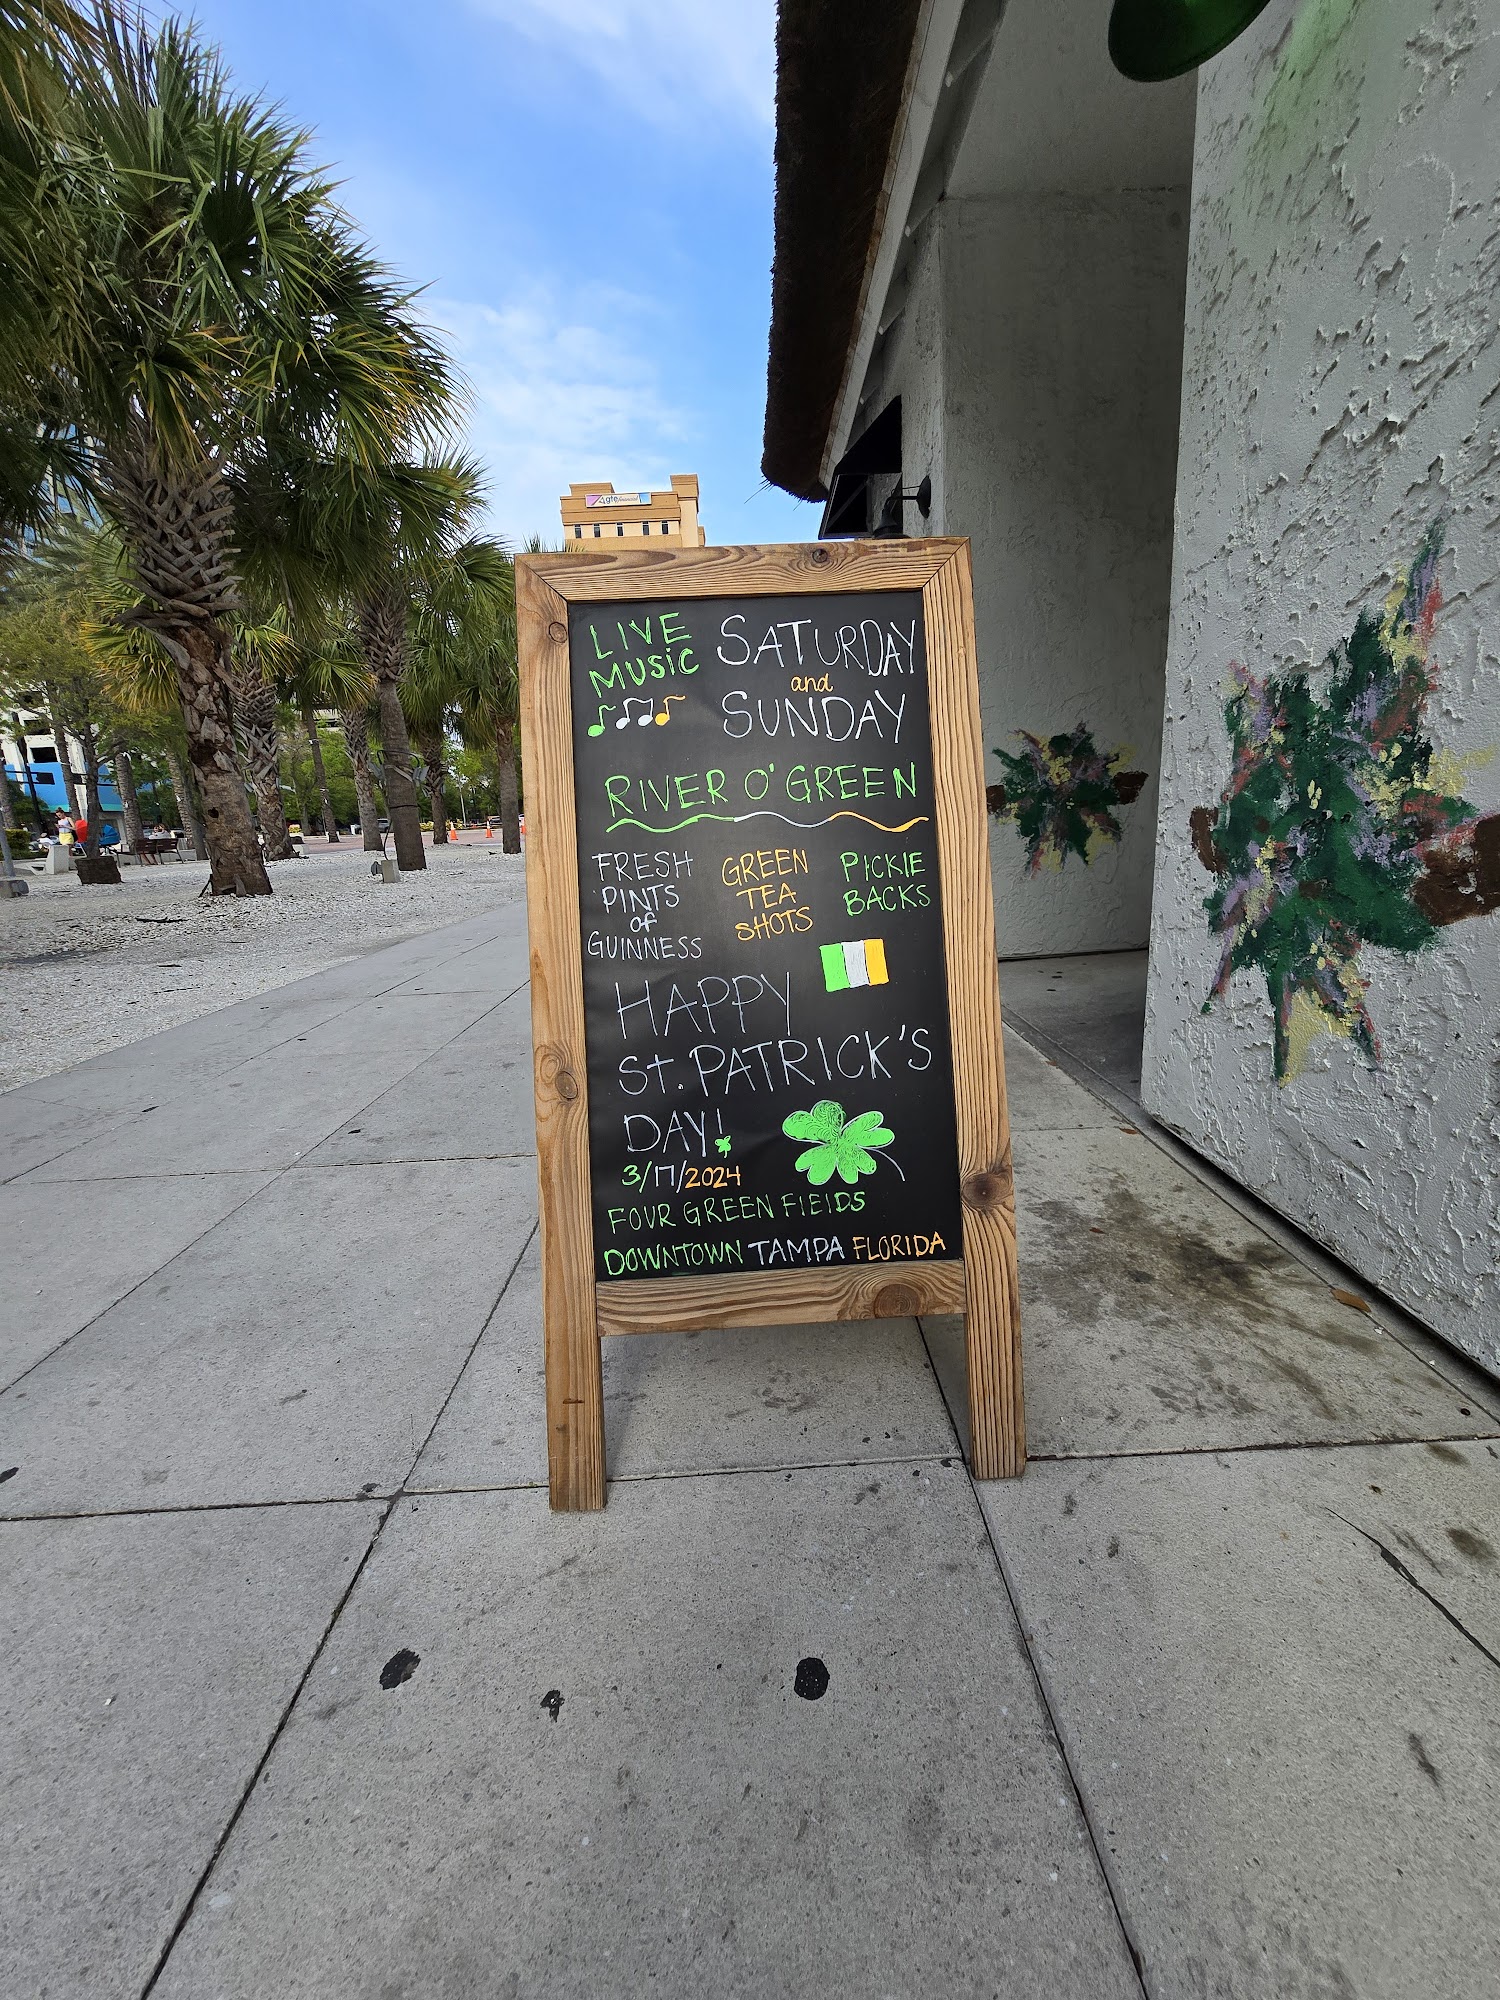 gte financial
LIVE
MUSiC
SATURDAY
and
SUNDAY
RIVER O' GREEN
FRESH
PINTS
of
GUINNESS
GREEN
TEA
SHOTS
PICKlE
BACKS
HAPPY
St. PATRICK'S
DAY!
3/17/2024
FOUR GREEN FIElDS
DOWNTOWN TAMPA FLORIDA